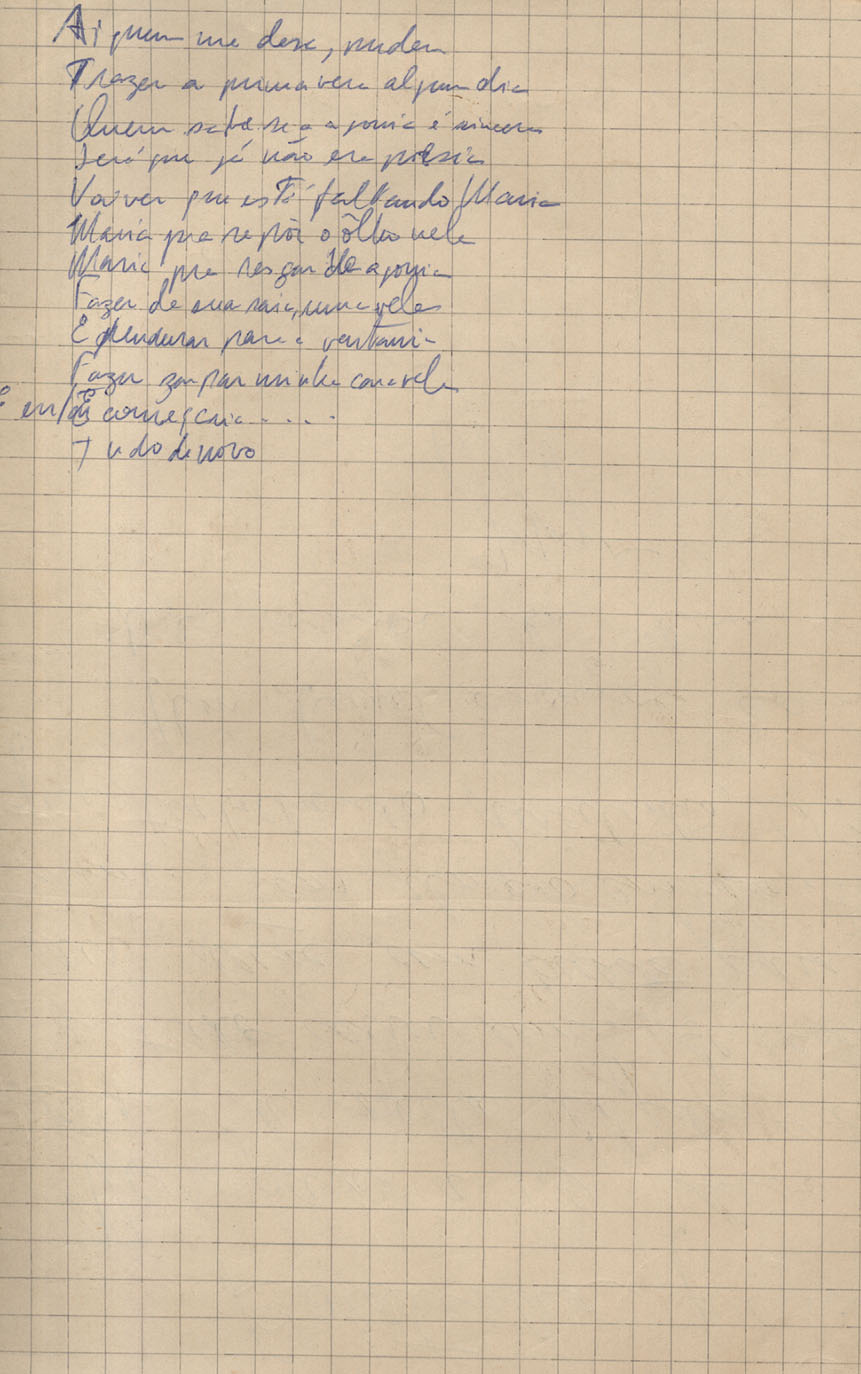 Ai quem me dera, pudera
Trazer a primavera algum dia
Quem sabe se a agonia é sincera
Será que já não era poesia
Vai ver que está faltando Maria
Maria pra se pôr o ôlho nela
Maria pra rasgar de agonia
Fazer de sua saia, uma vela
E pendurar para a ventania
Fazer zarpar minha caravela
E então começaria....
Tudo de novo